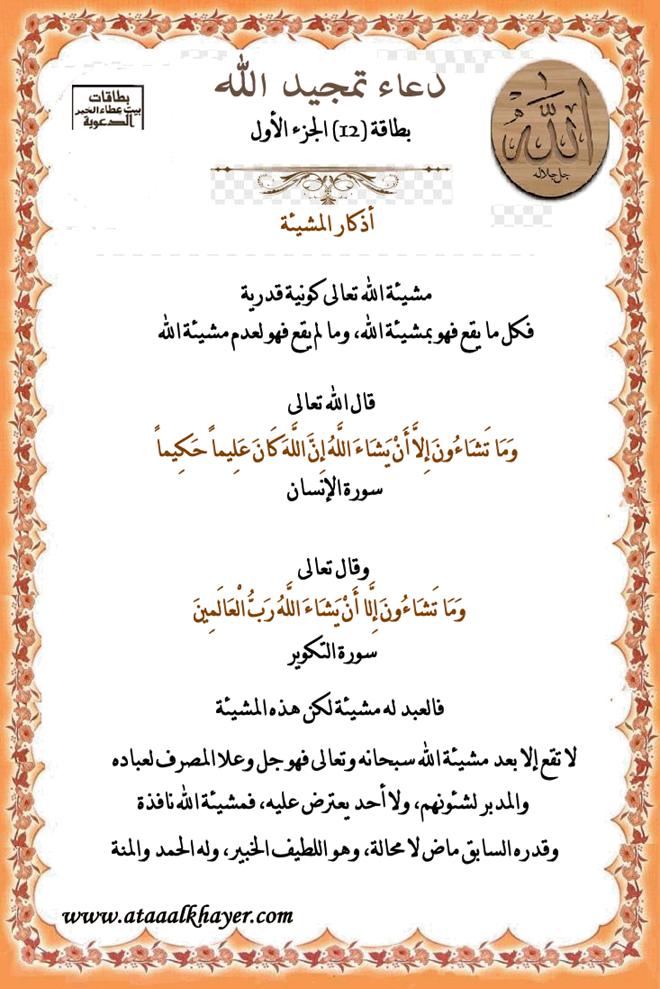 دعاء تمجيد الله
بطاقة (12) الجزء الأول
بطاقات
بيت عطاء الخير
الدعوية
الله
جل جلاله
أذكار المشيئة
مشيئة الله تعالى كونية قدرية
فكل ما يقع فهو بمشيئة الله، وما لم يقع فهو لعدم مشيئة الله
قال الله تعالى
وَمَا تَشَاءُونَ إِلاَّ أَنْ يَشَاءَ اللَّهُ إِنَّ اللَّهَ كَانَ عَلِيماً حَكِيماً
سورة الإنسان
وقال تعالى
وَمَا تَشَاءُونَ إِلَّا أَنْ يَشَاءَ اللَّهُ رَبُّ الْعَالَمِينَ
سورة التكوير
فالعبد له مشيئة لكن هذه المشيئة
لا تقع إلا بعد مشيئة الله سبحانه وتعالى فهو جل وعلا المصرف لعباده
والمدبر لشئونهم، ولا أحد يعترض عليه، فمشيئة الله نافذة
وقدره السابق ماض لا محالة، وهو اللطيف الخبير، وله الحمد والمنة
www.ataaalkhayer.com